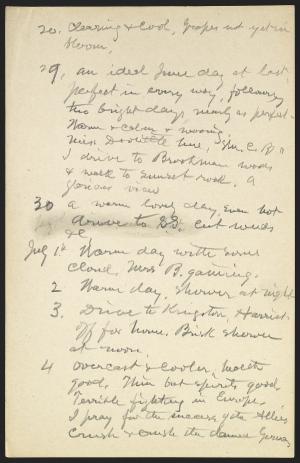 20. Clearing & cool, Grapes not yet in
bloom,
29, an ideal June day at last
perfect in every way, following
two bright days, nearly as perfect.
Warm & calm &
Miss Doolittle here, "Mrs. C. B."
I drive to Brookman woods
& walk to sunset rock. A
glorious view
30 a warm lovely day, even hot
drive to cut weeds
&c
July 1st Warm day with some
cloud, Mrs B. gaining.
2 Warm day, shower at night
3. Drive to Kingston, Harriet
off for home. Brisk shower
at noon.
4 Overcast & cooler, health
good, Thin but spirits good,
Terrible fighting in Europe,
I pray for the success of the Allies
Crush & crush the damned Germans